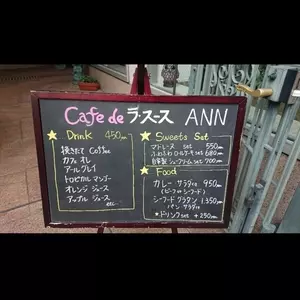 Cafe de ラ・スース ANN
Drink 450yen
挽きたて Coffee
カフェオレ
アールグレイ
トロピカル マンゴー
オレンジ ジュース
アップル ジュース
etc
Sweets Set
マドレーヌ set 550yen
ふわふわロールケーキ set 680yen
自家製 シュークリーム set 700yen
Food
カレー サラダ付 950yen
(ビーフ or シーフード)
シーフードグラタン 1,350yen
パン サラダ付
* ドリンク set +250yen